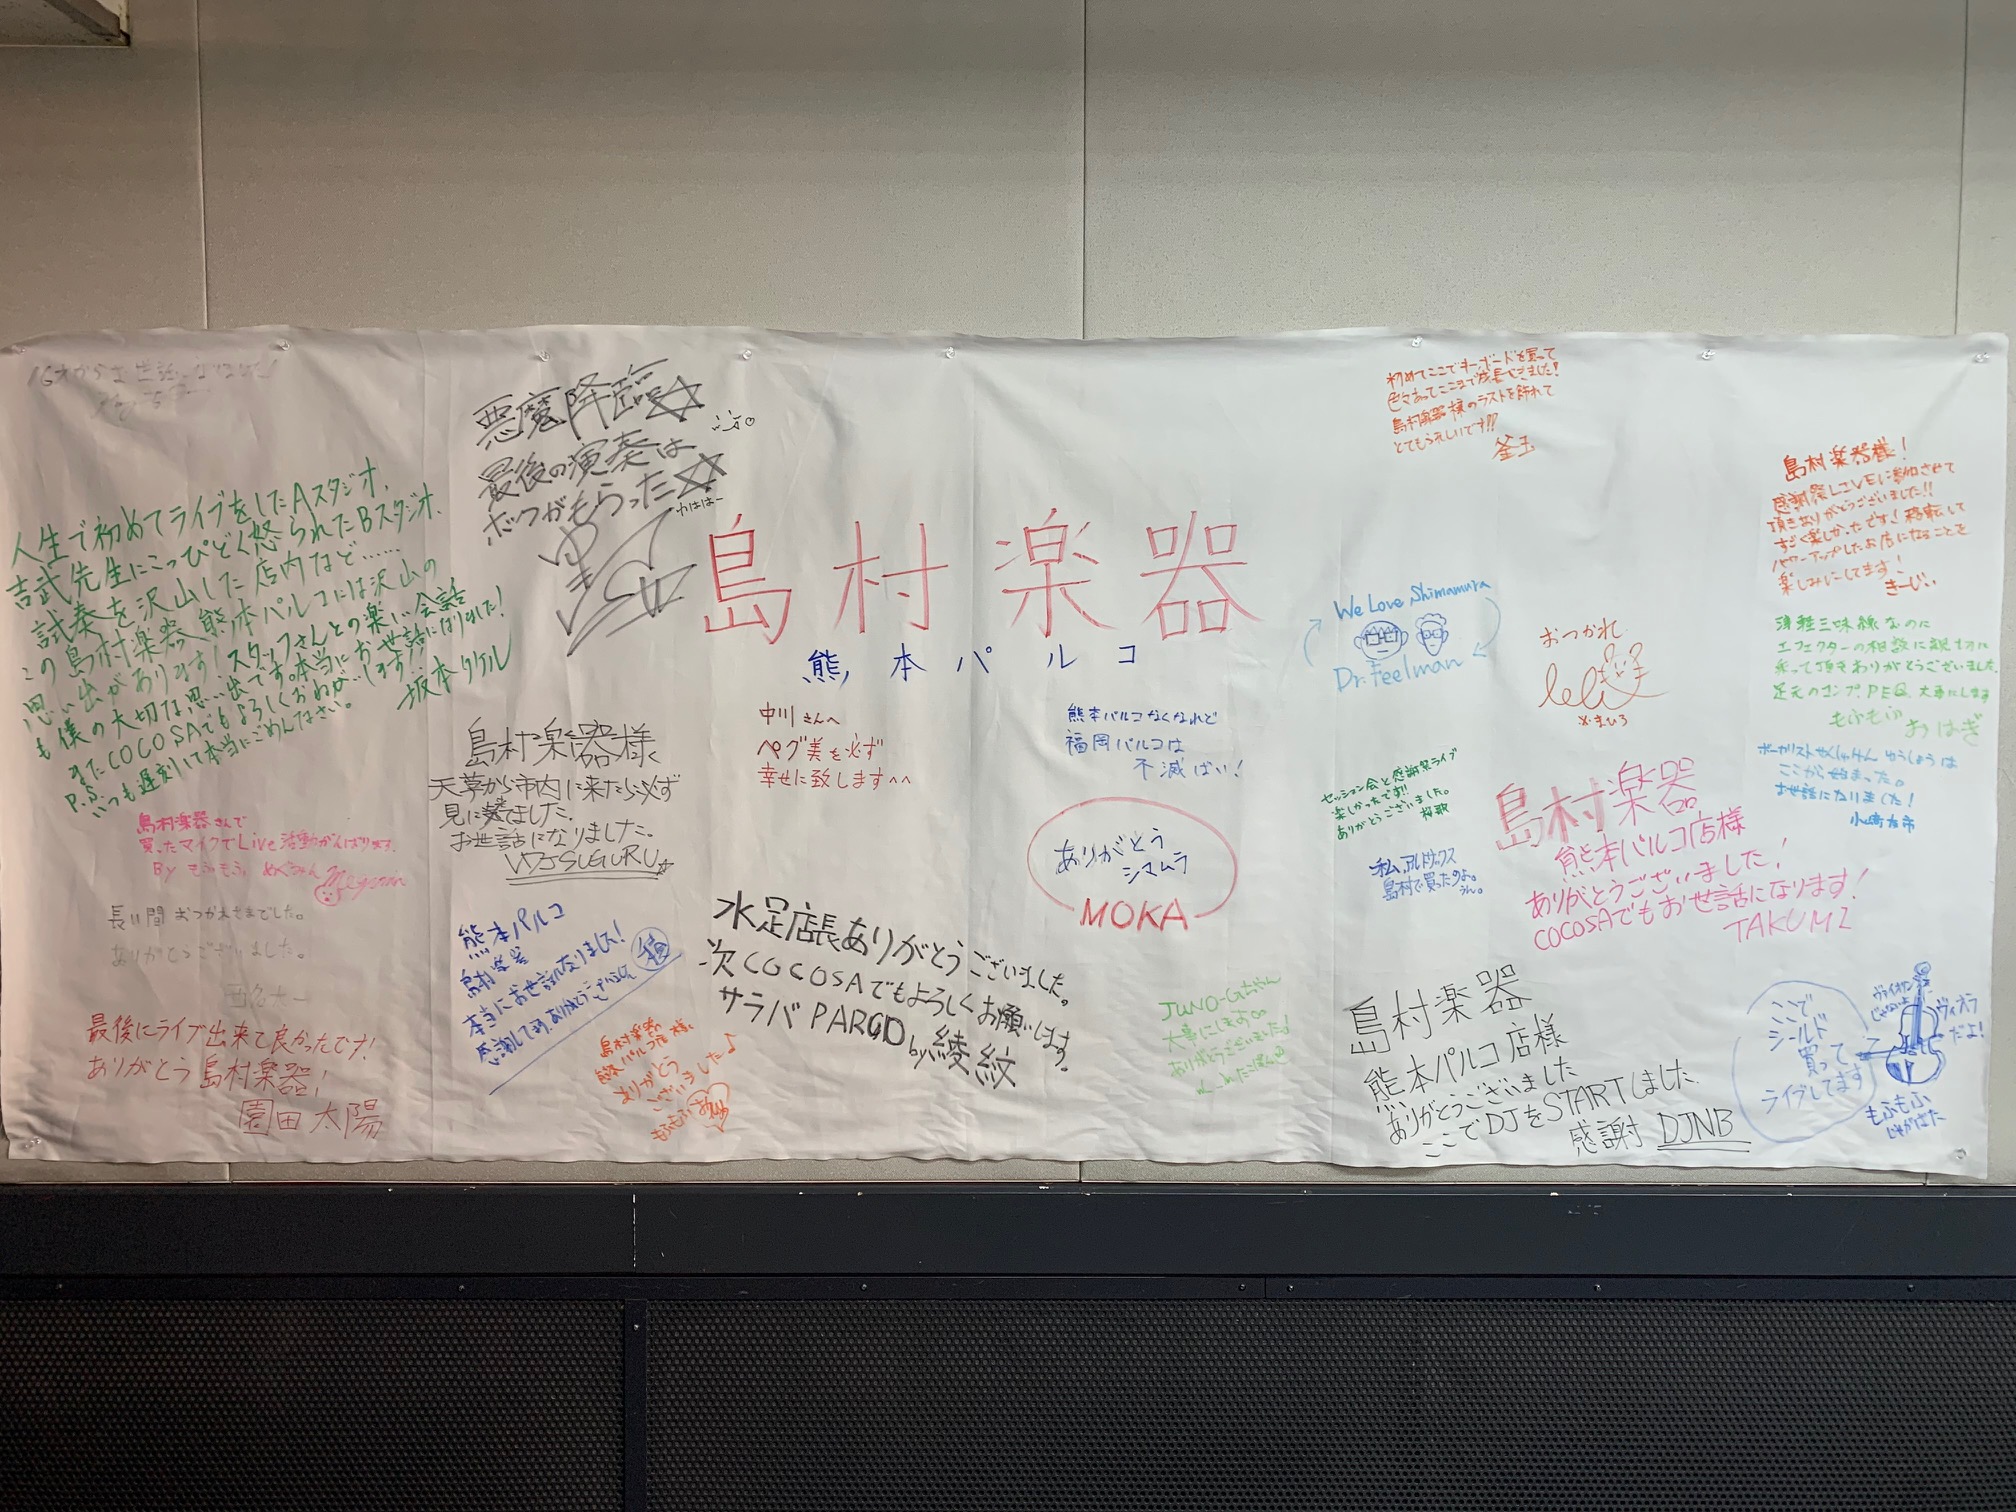 16才からお世話になりました!
人生で初めてライブをしたAスタジオ、
吉武先生にこっぴどく怒られたBスタジオ、
試奏を沢山した店内など……
この島村楽器 熊本パルコには沢山の
思い出があります!スタッフさんとの楽しい会話
も僕の大切な思い出です。本当にお世話になりました!
またCOCOSAでもよろしくおねがいします!
P.S. いつも遅刻して本当にごめんなさい。
坂本タケル
島村楽器さんで
買ったマイクでLive活動がんばります。
By もふもふ めぐみん
Megumin
長い間おつかれさまでした。
ありがとうございました。
最後にライブ出来て良かったです!
ありがとう島村楽器!
園田太陽
悪魔降臨☆
最後の演奏は
ボクがもらった☆
かはは~
島村楽器様
天草から市内に来たら必ず
見に来ました。
お世話になりました。
VJSUGURU☆
熊本パルコ
島村楽器
本当にお世話になりました!
感謝してます。ありがとうございました
島村楽器
熊本パルコ店様
ありがとう
ございました♪
もふもふ
島村楽器
熊本パルコ
中川さんへ
ペグ美を必ず
幸せに致します^^
熊本パルコなくなれど
福岡パルコは
不滅ばい!
ありがとう
シマムラ
MOKA
水足店長ありがとうございました。
次COCOSAでもよろしくお願いします。
サラバPARCO by 綾紋
JUNO-Gちゃん
大事にします∞
ありがとうございました♪
初めてここでキーボードを買って
色々あってここまで成長できました!
島村楽器様のラストを飾れて
とてもうれしいです!!!
釜玉
We Love Shimamura
Dr.Feelman
おつかれ
セッション会と感謝祭ライブ
楽しかったです!!
ありがとうございました。
私、アルトサックス
島村で買ったのよ。
うん。
島村楽器
熊本パルコ店様
ありがとうございました!
COCOSAでもお世話になります!
TAKUMI
島村楽器
熊本パルコ店様
ありがとうございました
ここでDJをSTARTしました
感謝 DJNB
島村楽器様!
感謝祭LIVEに参加させて
頂きありがとうございました!!
すごく楽しかったです!移転して
パワーアップしたお店になることを
楽しみにしてます!
きーじぃ
津軽三味線なのに
エフェクターの相談に親切に
乗って頂きありがとうございました。
足元のコンプ、PEQ、大事にします
もふもふ おはぎ
ここから始まった。
お世話になりました!
ここで
シールド
買って
ライブしてます
ヴァイオリン
じゃなくて
ヴィオラ
だよ!
もふもふ
じゃがばた